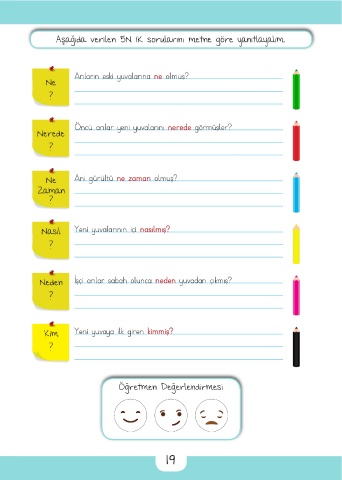 Aşağıda verilen 5N 1K sorularını metne göre yanıtlayalım.
Ne
?
Arıların eski yuvalarına ne olmuş?
Nerede
?
Öncü arılar yeni yuvalarını nerede görmüşler?
Ne
Zaman
?
Ani gürültü ne zaman olmuş?
Nasıl
?
Yeni yuvalarının içi nasılmış?
Neden
?
İşçi arılar sabah olunca neden yuvadan çıkmış?
Kim
?
Yeni yuvaya ilk giren kimmiş?
Öğretmen Değerlendirmesi
19